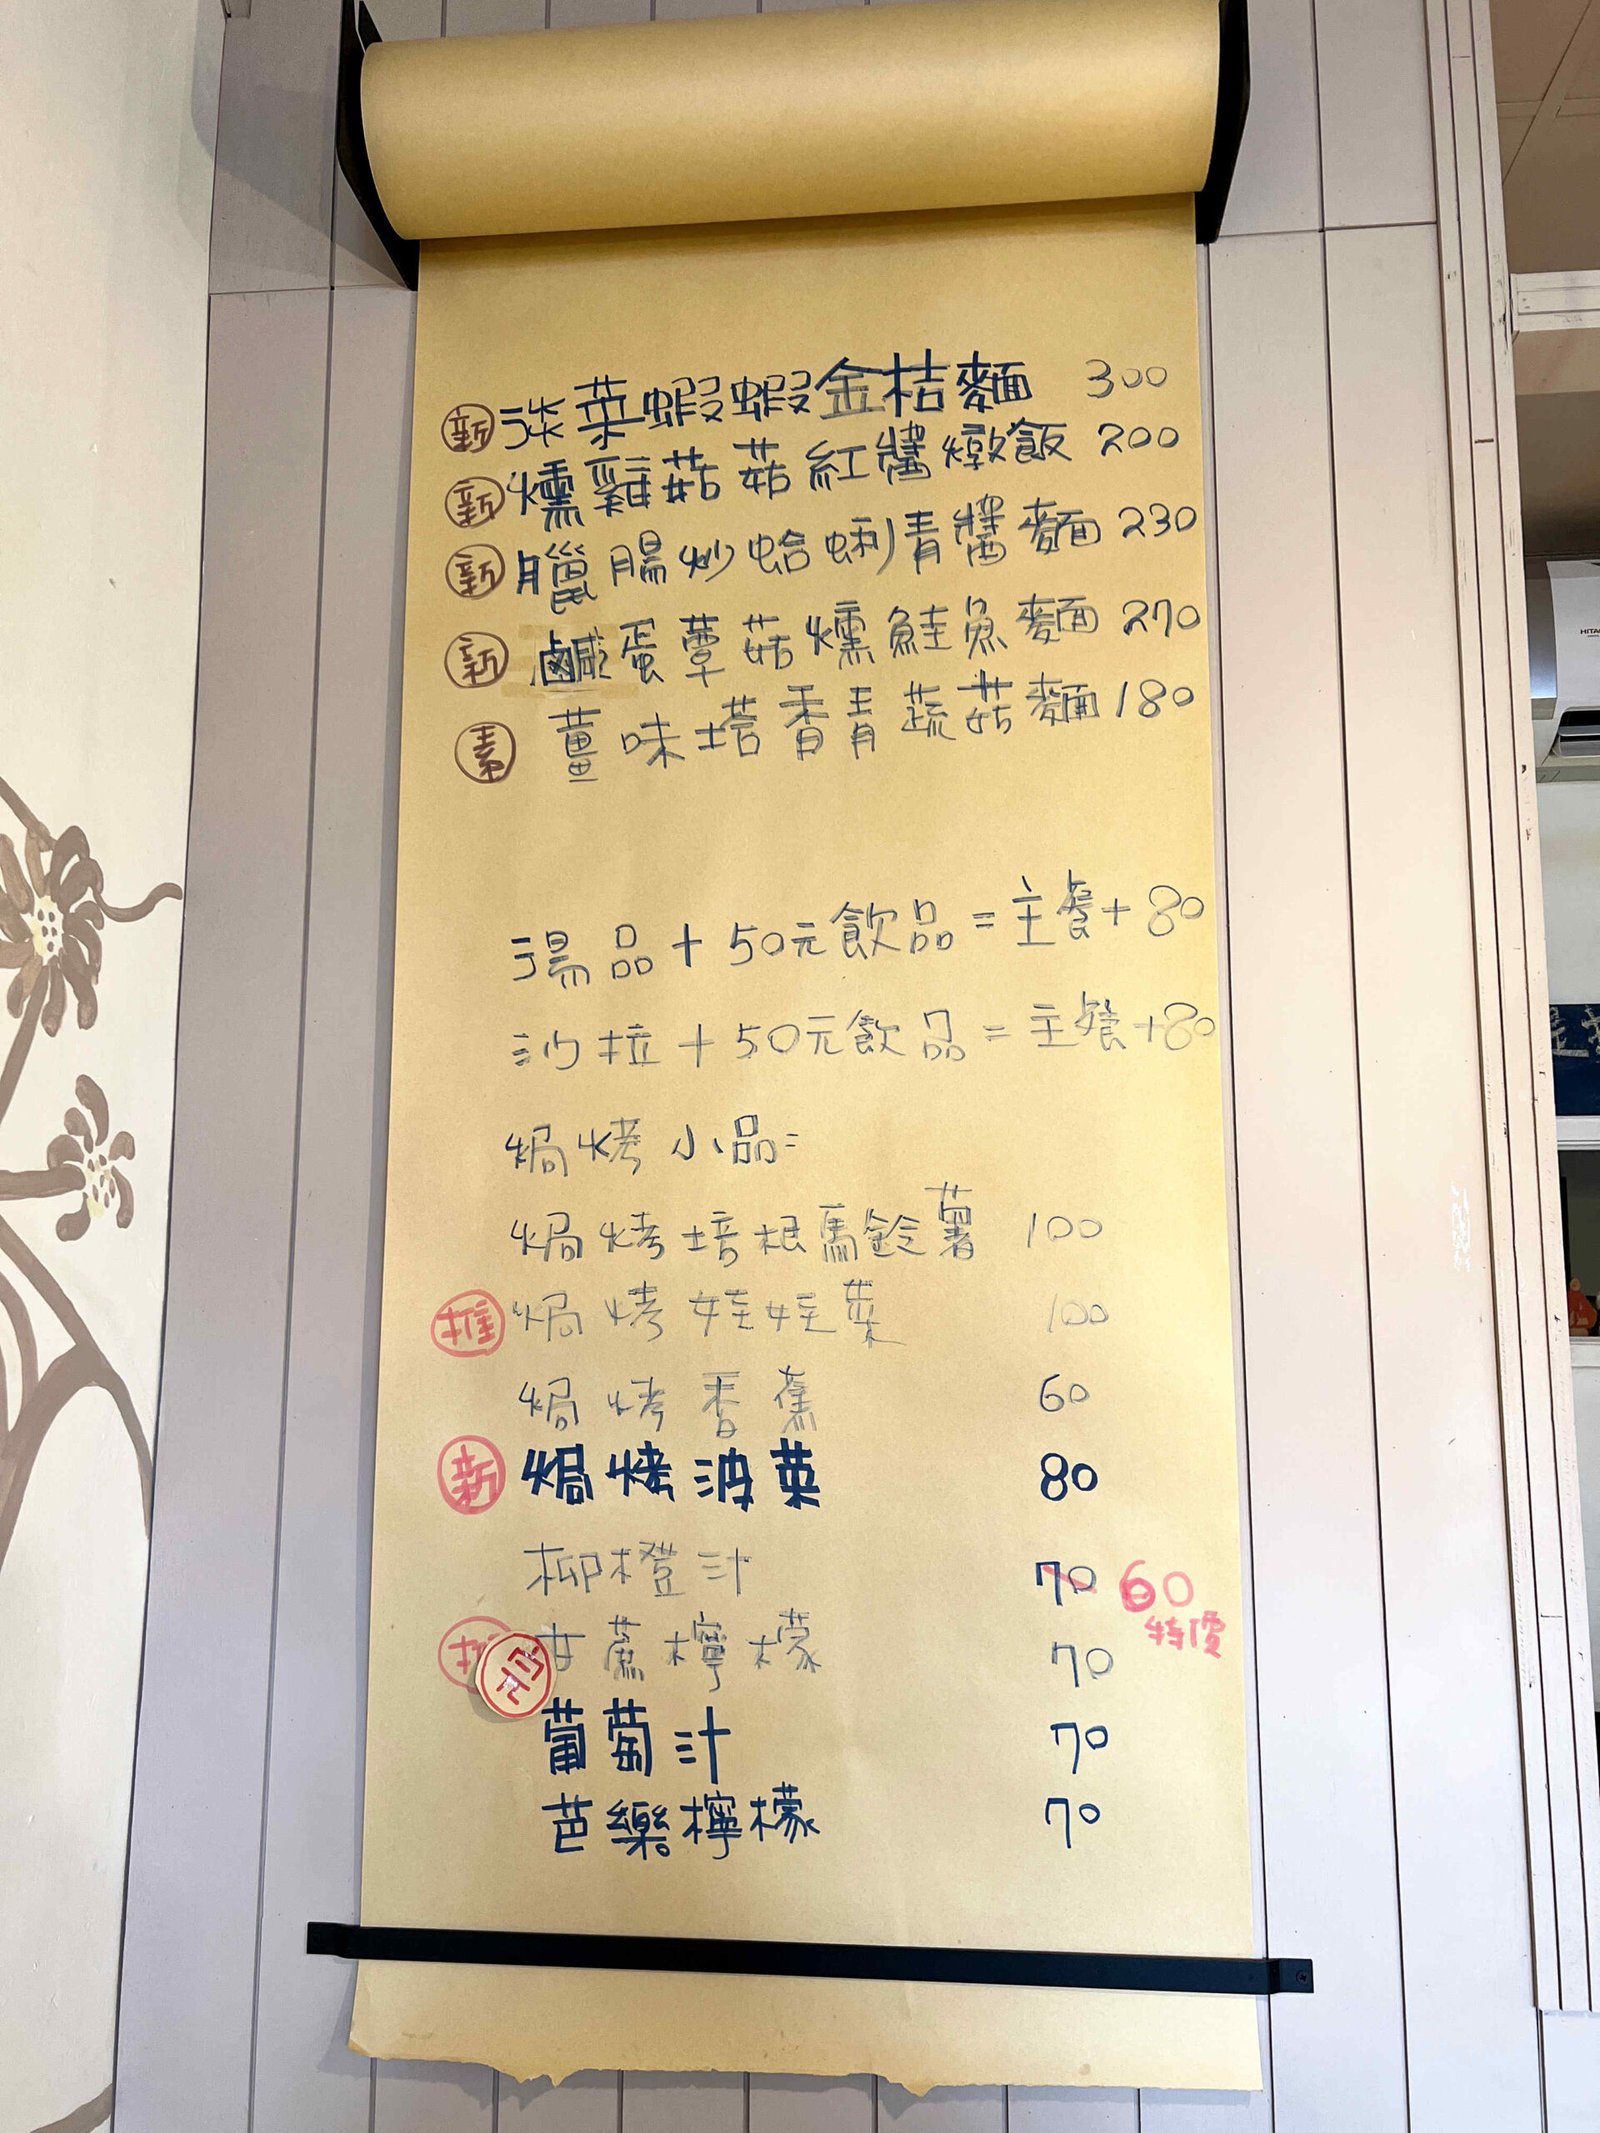 新 淡菜蝦蝦金桔麵 300
新 燻雞菇菇紅醬燉飯 200
新 臘腸炒蛤蜊青醬麵 230
新 鹹蛋蕈菇燻鮭魚麵 270
素 薑味塔香青蔬菇麵 180
湯品+50元飲品=主餐+80
沙拉+50元飲品=主餐+80
焗烤小品:
焗烤培根馬鈴薯 100
推 焗烤娃娃菜 100
焗烤香蕉 60
新 焗烤波菜 80
柳橙汁 70 60
特價
推 甘蔗檸檬 70
葡萄汁 70
芭樂檸檬 70
HITAC